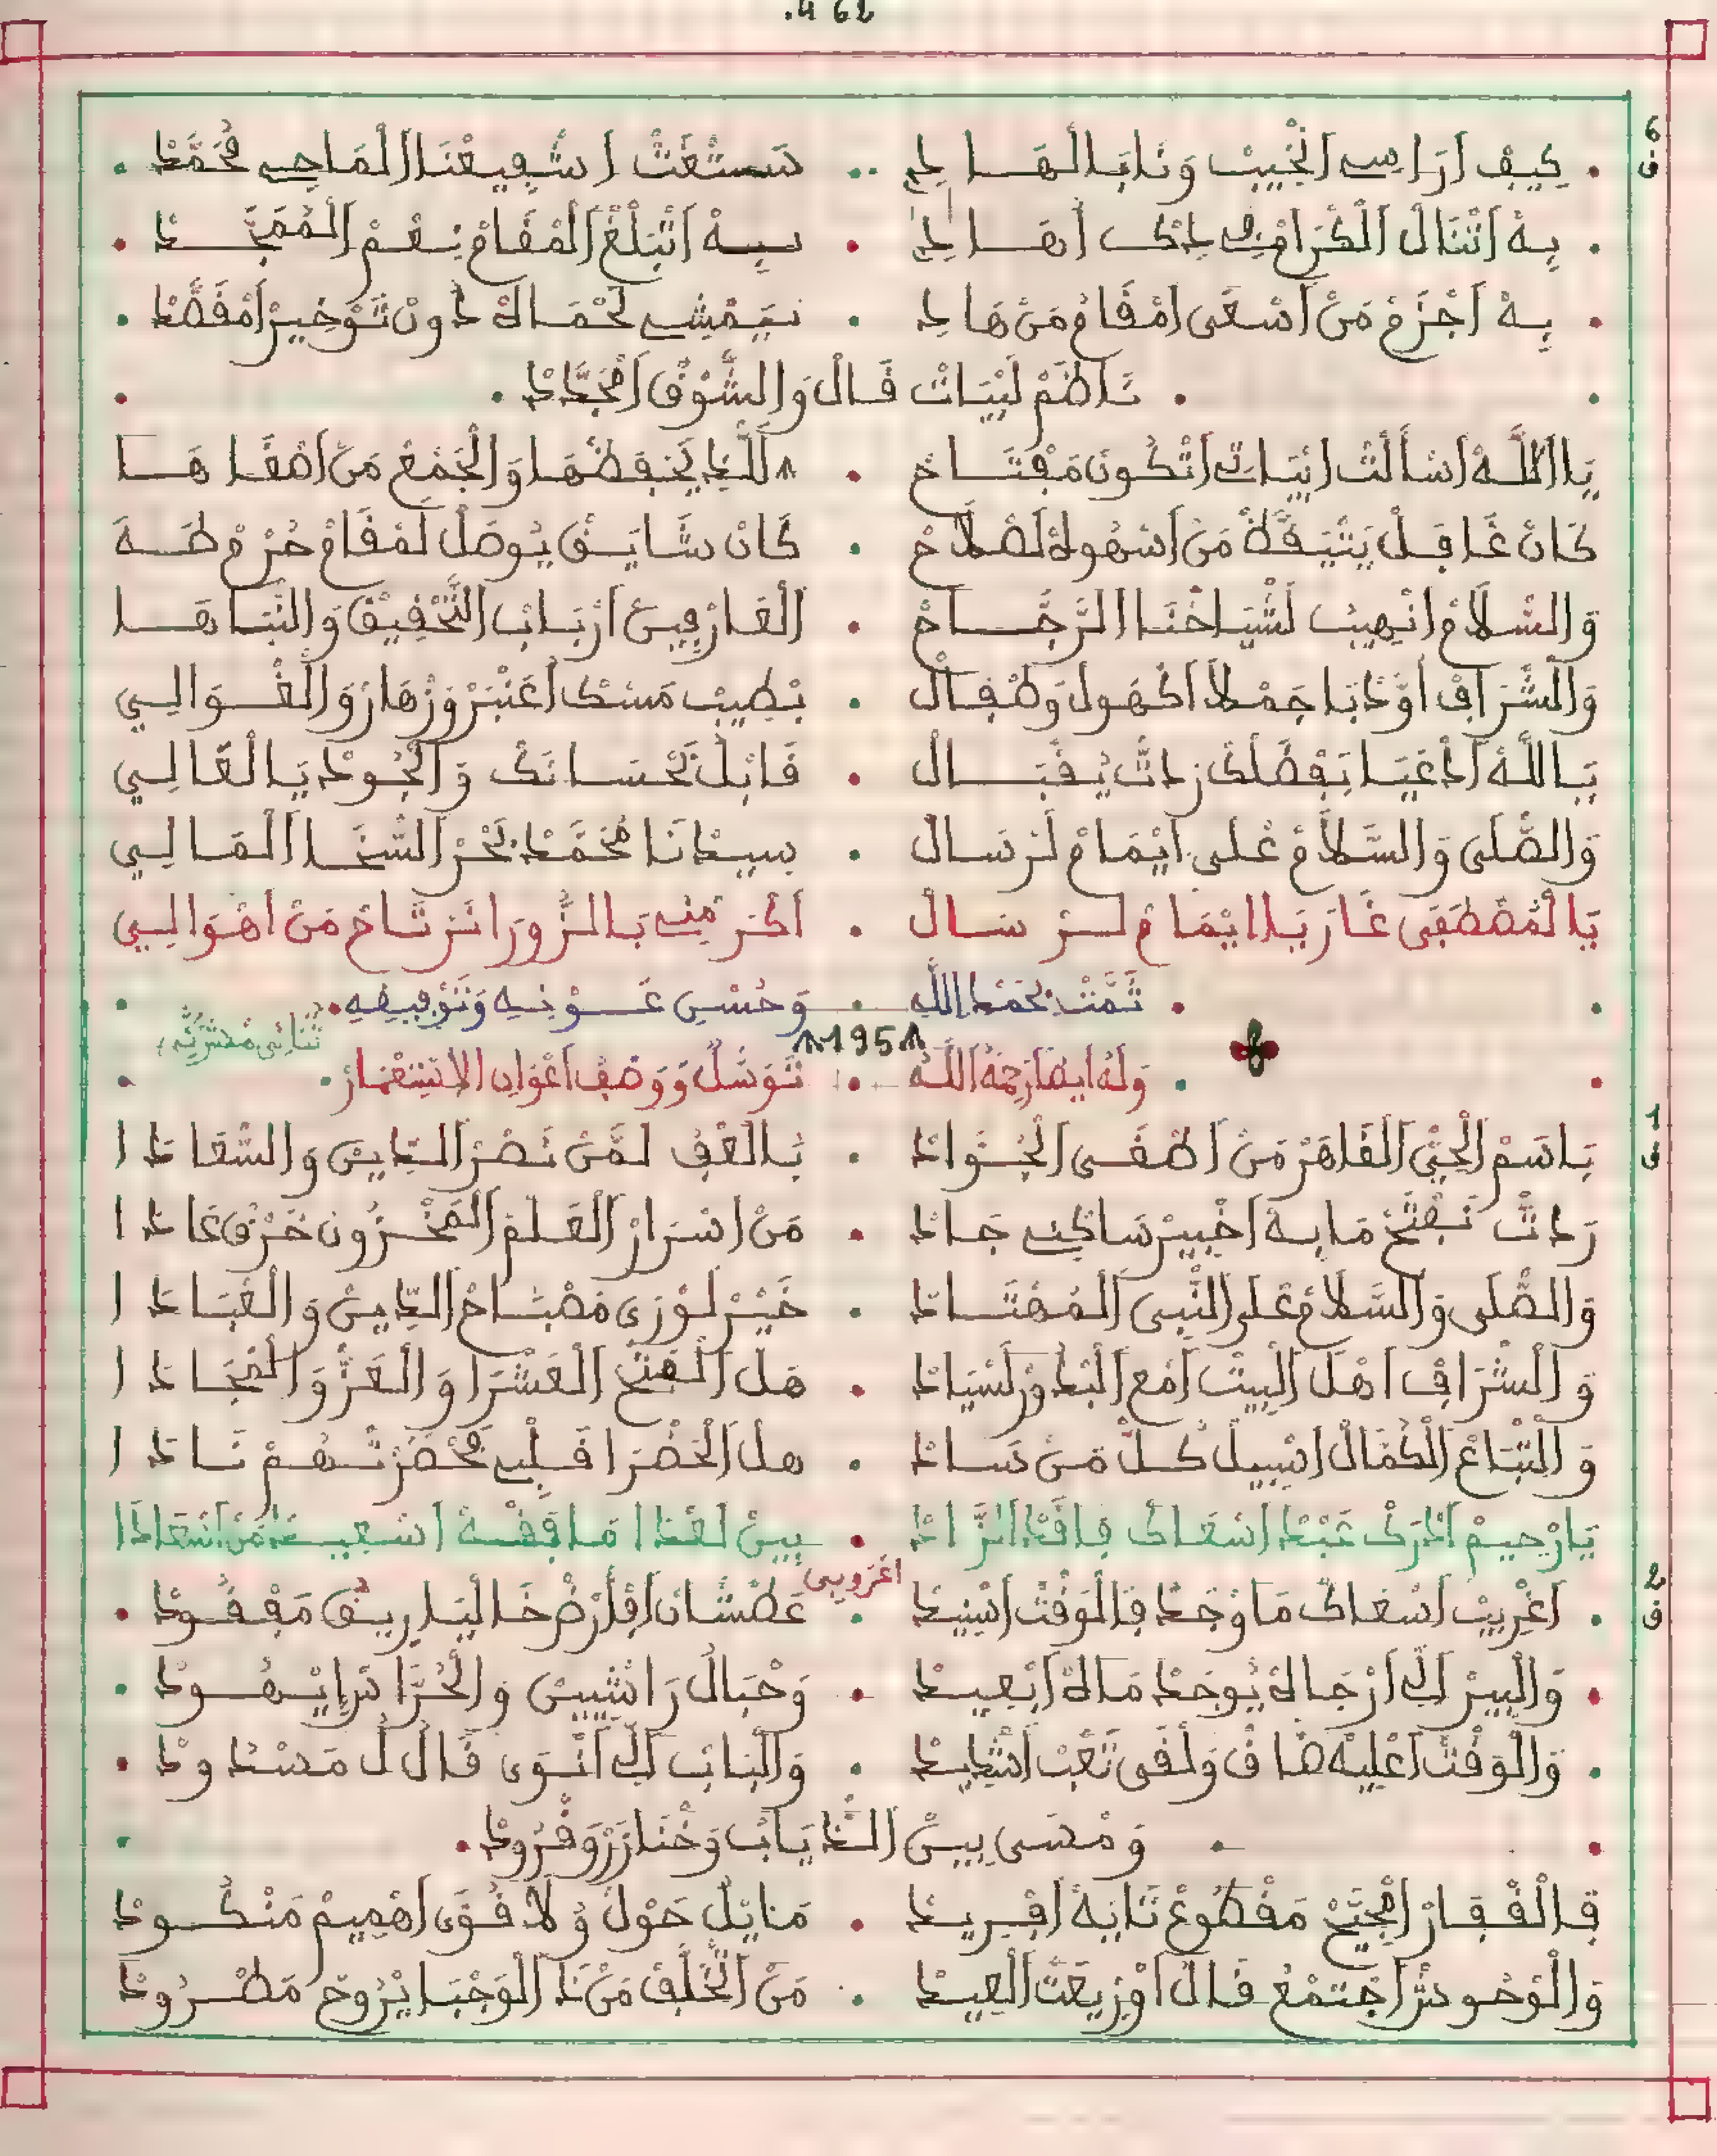 462.
6 ف
كِيفْ اَرَاسِي الْخِيبْ وَنَابَا لَهَـا لِي .. سَسْتْغَتْ اشْفِيعْنَا الْمَاحِي مُحَمَّدْ
بِهْ اَتْنَالْ الْكْرَامْ فِي ذِكْ اَهَـا لِي . بِهْ اَتْبَلْغْ الْمْقَامْ نِعْمْ الْمُمَجَّـدْ
بِهْ اَجْزَمْ مَنْ اَسْعَى اَمْقَامْ مَنْ هَادِ . يَمْشِي لَحْمَاهْ دُونْ تَوْخِيرْ اَمْقَصَّدْ
نَاظَمْ لَبْيَاتْ قَالْ وَالشُّوقْ اَمْجَدَّدْ
يَا اللَّهْ اَسْأَلْتْ ابْيَاتِي اَتْكُونْ مَفْتَـاحْ . اللِّي يَحْفَضْهَا وَالْجَمْعْ مَنْ اَصْغَا هَـا
كَانْ غَافِلْ يَتْيَقَّظْ مَنْ اَسْهُوهْ لَصْلَاحْ . كَانْ شَايَقْ يُوصَلْ لَمْقَامْ حُرْمْ طَـهَ
وَالسْلَامْ اَنْهِيبْ لَشْيَاخْنَا الرَّجَّـاحْ . الْعَارْفِينْ اَرْبَابْ التَّحْقِيقْ وَالنّْبَاهَـا
وَالشْرَافْ اَوُّدْبَا جَمْلَا اَكْهُولْ وَطْفَالْ . بْطِيبْ مَسْكْ اَعَنْبَرْ وَزْهَارْ وَالْغْـوَالِي
يَا اللَّهْ اَدْعَيَا بَفْضَلْكْ رَدْتْ يُقْبَـالْ . قَابَلْ بَحْسَانَكْ وَالْجُودْ يَا الْعَالِي
وَالصْلَى وَالسْلَامْ عْلَى اِيْمَامْ لَرْسَالْ . سِيدْنَا مُحَمَّدْ بَحْرْ السْخَـا الْمَالِي
يَا لْمُصْطَفَى غَارَ يَا ايْمَامْ لَـرْسَـالْ . اَكْرَمْنِي بَالزُّورَا نَرْتَـاحْ مَنْ اَهْوَالِي
تَمَّتْ بِحَمْدِ اللَّهِ . وَحُسْنِ عَـوْنِهِ وَتَوْفِيقِهِ
1951
وَلَهُ أَيْضًا رَحِمَهُ اللَّهُ . تَوَسُّلْ وَوَصْفْ اَعْوَانْ الِاسْتِعْمَارْ
1 ف
بَاسَمْ الْحَيّْ الْقَاهَرْ مَنْ اَطْغَـى الْجُوَادْ . بَالْعْفُ لَمَّنْ نَصْرْ الدِّينْ وَالسْعَادَا
رَدْتْ نَفْتَحْ مَا بِهْ اَخْبِيرْ سَاكْنِي جَـادْ . مَنْ اسْرَارْ الْعَلْمْ الْمَخْـزُونْ خَرْقْ عَادَا
وَالصْلَى وَالسْلَامْ عْلَى النّْبِي الْمُهْتَـادْ . خَيْـرْ لَوْرَى مَصْبَـاحْ الدِّينْ وَالْعْبَـادَا
وَالشْرَافْ اَهْلْ الْبِيتْ اَمْعَ الْبْدُورْ لَسْيَادْ . هَلْ الْفَتْحْ الْعَشْرَا وَالْعَزّْ وَالْمْجَـادَا
وَالتّْبَاعْ الْكُمَّالْ اَسْبِيلْ كُـلّْ مَنْ سَـادْ . هلْ الْحَضْرَا قَلْبِي مَحْضَرْتْـهُمْ نَـادَا
يَا رْحِيمْ اَدْرَكْ عَبْدْ اَسْعَاكْ فَاقَدْ الزَّادْ . بِينْ لَعْدَا مَا فَقْـهْ اَسْعِيـدْ مَنْ اَسْعَادَا
2 ف
اَغْرِيبْ اَسْعَاكْ مَاوْجَدْ فَالْوَقْتْ اَسْنِيدْ . عَطْشَانْ اَفْاَرْضْ خَالْيَا رِيقْ مَفْقُـودْ
وَالْبِيرْ اللِّي اَرْجَاهْ يُوجَدْ مَاهْ اَبْعِيـدْ . وَحْبَالْ رَاشْيِينْ وَالْحُرَّاسْ اِيْـهُـودْ
وَالْوَقْتْ اَعْلِيهْ ضَاقْ وَلْقَى تَعْبْ اَشْدِيـدْ . وَالْبَابْ اللِّي اَنْـوَى قَالْ لُ مَسْدُودْ
وَمْسَى بِينْ الذْيَابْ وَخْنَازَرْ وَقْرُودْ
فَالْقْفَـارْ اَمْجَيَّحْ مَقْطُوعْ نَابَهْ اَفْـرِيـدْ . مَا يْلْ حَوْلْ وُلَا قُوَّى اَهْمِيمْ مَنْكُـودْ
وَالْوْحُوشْ اَجْتَمْعُ قَالُ اَوْزِيعَتْ الْعِيـدْ . مَنْ اتْخَلَّفْ مَنْ ذَا الْوَجْبَا يْرُوحْ مَطْـرُودْ